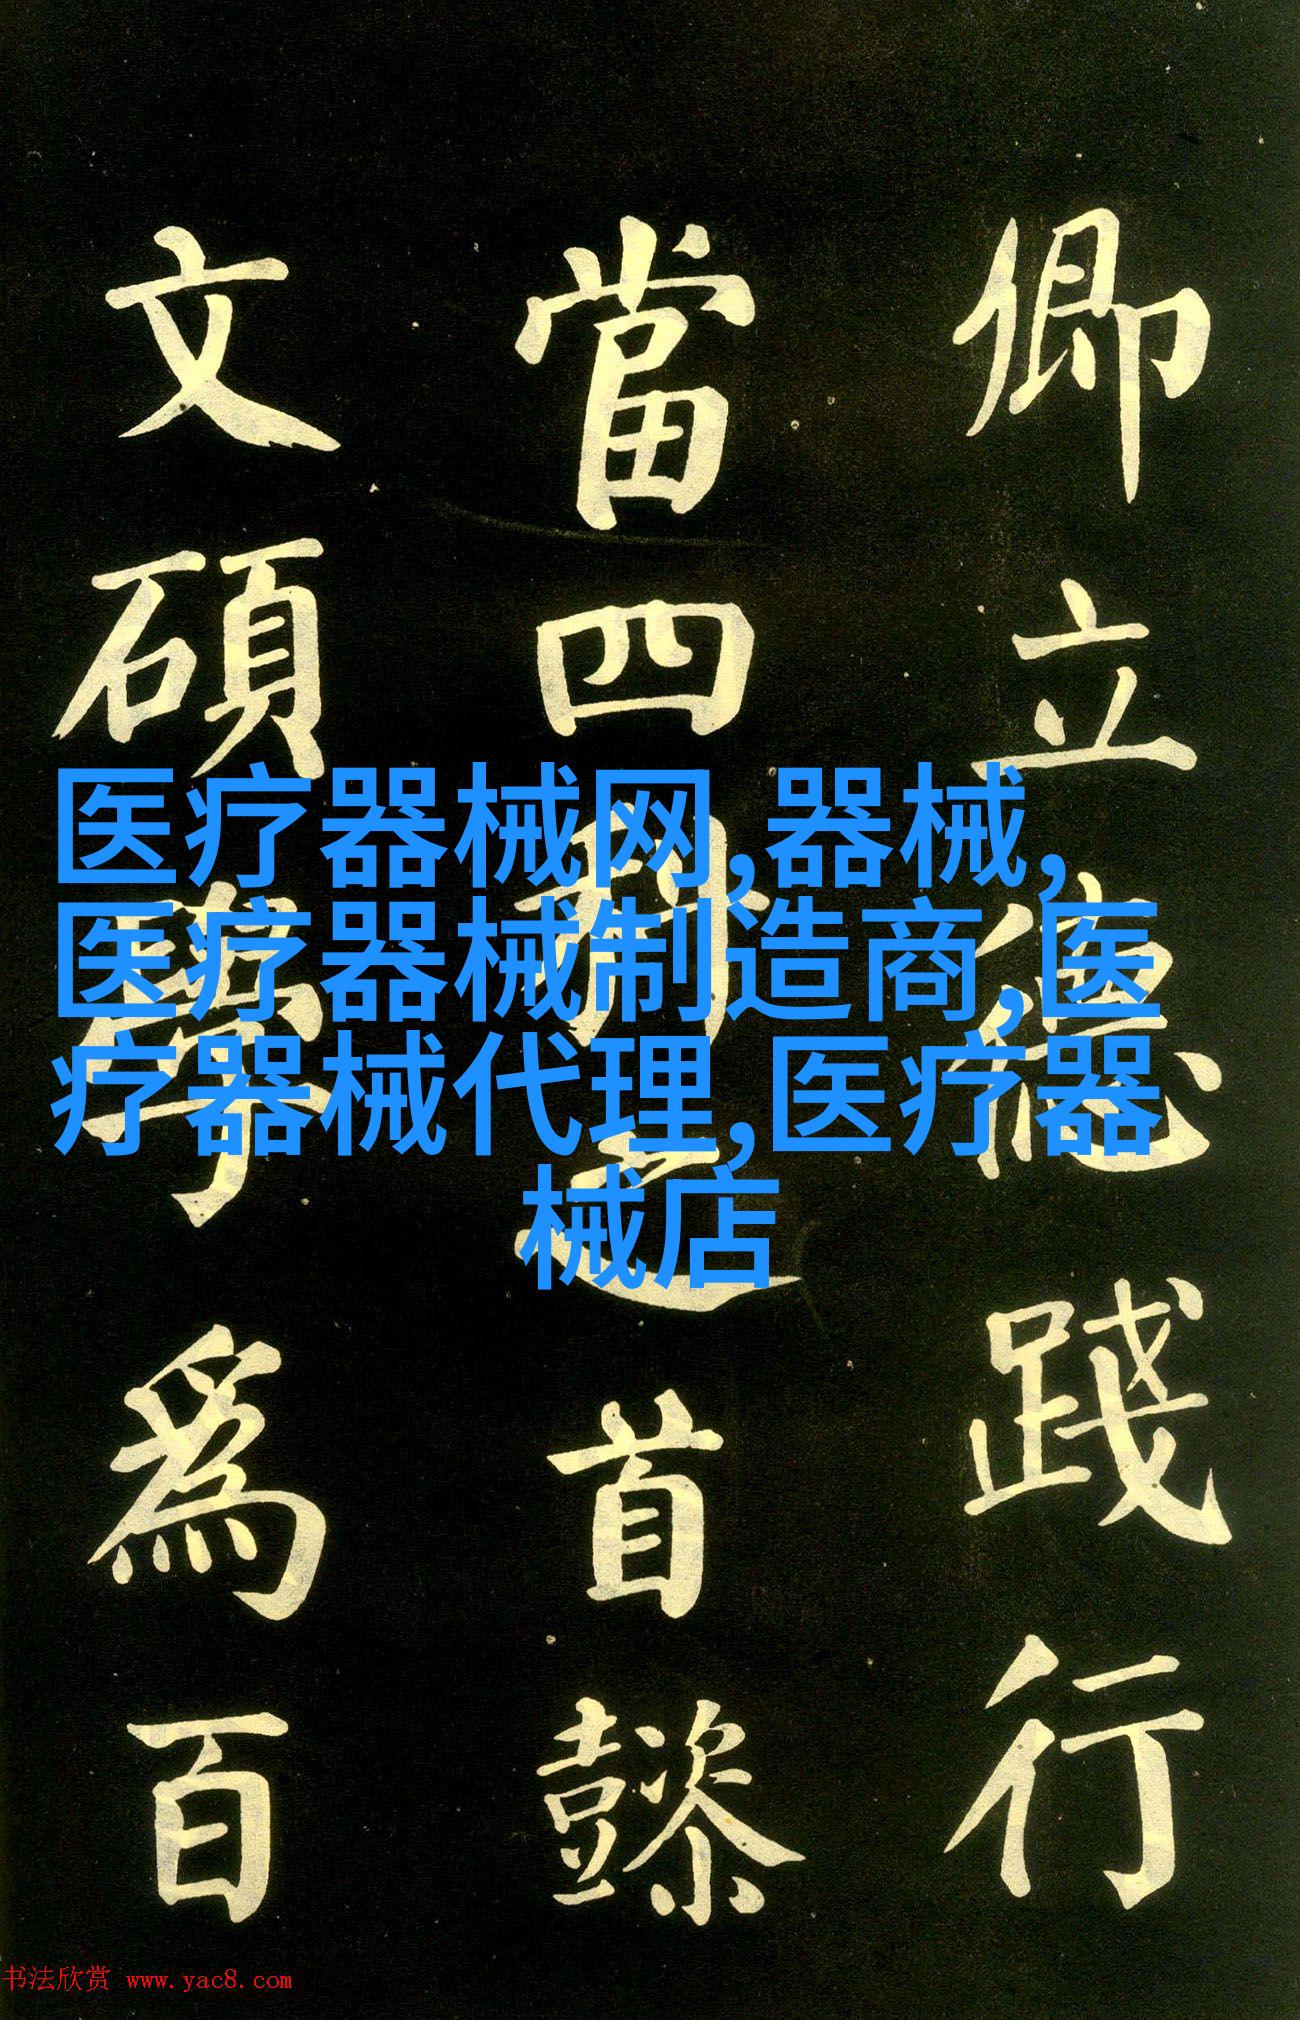 卿立德踐行
當四科之首懿
文碩學為百
医疗器械网,器械,
医疗器械制造商,医
疗器械代理,医疗器
械店
书法欣赏 www.yac8.com